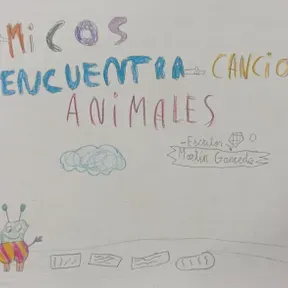 MICOS
ENCUENTRA CANCIO
ANIMALES
-Escritor
Martín